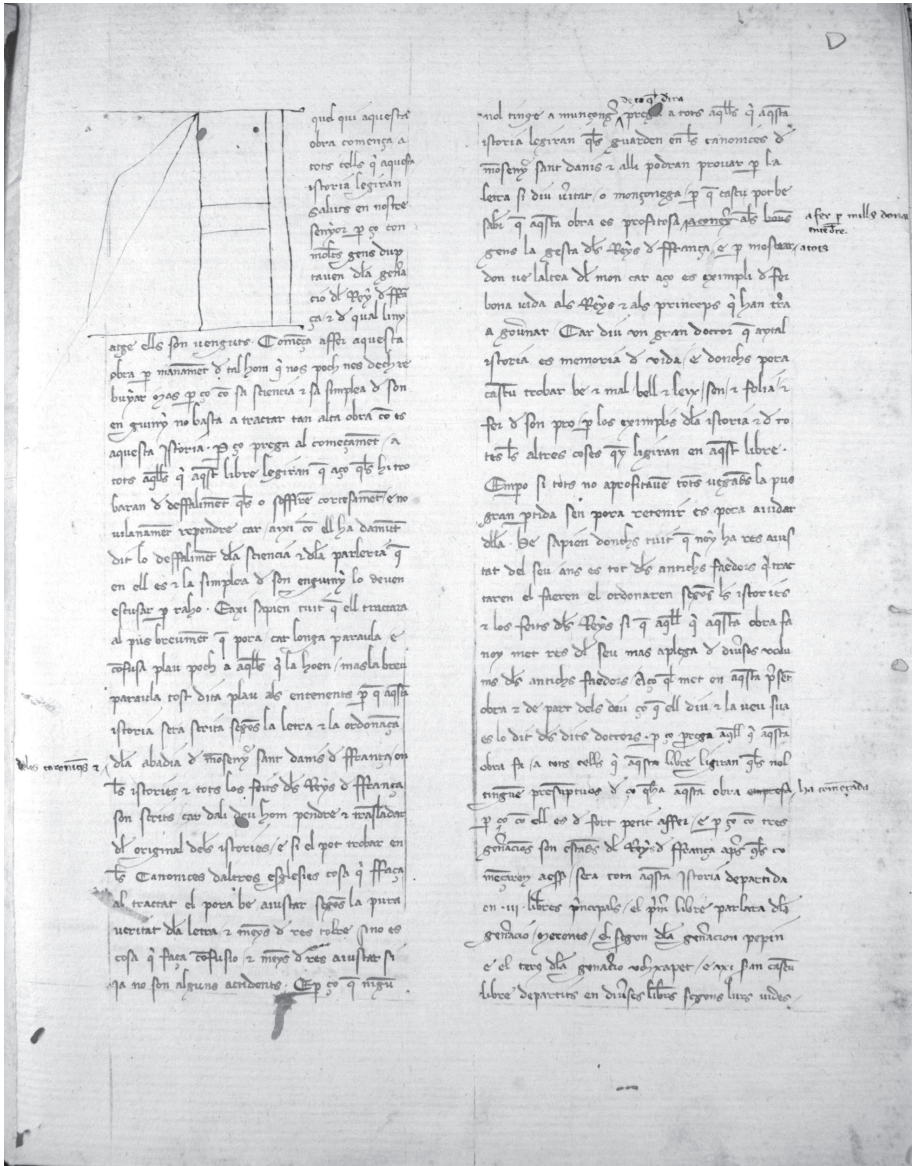 D
quel qui aquesta
obra comença a
tots cells q̄ aquesta
istoria legiran
Saluts en nostre
senyor p ço con
moltes gens dup
tauen dla geña
cio dl Rey d ffrā
ça & d qual liny
atge ells son uenguts. Começa affer aquesta
obra p manamēt d tal hom q̄ nos poch nes dech re
buyar mas p ço cō sa sciencia & sa simplea d son
en guiny no basta a tractar tan alta obra cō es
aquesta Istoria. P ço prega al començamēt, a
tots aqlls q̄ aqst libre legiran q̄ aço qls hi tro
baran d deffallimēt qls o soffrē cortesamēt e no
uilanamēt rependre car, axi cō ell ha damūt
dit lo deffallimēt dla sciencia & dla parleria q̄
en ell es & la simplea d son enguiny lo deuen
escusar p raho. Eaxi sapien tuit q̄ ell tractara
al pus breumēt q̄ pora car longa paraula e
cōfusa plau poch a aqlls q̄ la hoen, mas la breu
paraula tost dita plau als entenents p q̄ aqsta
istoria sera scrita segōs la letra & la ordonaça
dles coroniqs &
dla abadia d mōseny sant danis d ffrança, on
ls istories & tots los feits dls Reys d ffrança
son scrits car dali deu hom pendre & trasladar
dl original dels istories, e si el pot trobar en
ls Canonices daltres esglesies cosa q̄ ffaça
al tractat el pora be aiustar segōs la pura
ueritat dla letra & meyns d res tolre sino es
cosa q̄ faça cōfusio & meyns d res aiustar si
ia no son alguns accidents. Ep ço q̄ nigū
de ço q̄ dira
nol tinge a munçong̃ prega a tots aqlls q̄ aqsta
istoria legiran qls guarden en ls canonices d
mōseny sant danis & alli podran prouar p la
letra si diu ṽitat, o monçonega, p q̄ cascu pot be
saber q̄ aqsta obra es profitosa als bons
afer p mills donar
entēdre
gens la gesta dls Reys d ffrança, e p mostrar
atots
don ue laltea dl mon car aço es eximpli d fer
bona uida als Reys & als princeps q̄ han tr̃a
a gov̄nar Car diu un gran doctor q̄ aytal
istoria es memoria d vida, e donchs pora
cascu trobar be & mal bell & leix, sen & folia &
fer d son pro, p los eximplis dla istoria & d to
tes ls altres coses qy ligiran en aqst libre.
Empo si tots no aprofitauē tots vegads la pus
gran ptida sen pora retenir es pora aiudar
dlla. He sapien donchs tuit q̄ noy ha res aius
tat del seu ans es tot dls antichs faedors q̄ trac
taren el faeren el ordonaren segōs ls istories
& los feits dls Reys si q̄ aqll q̄ aqsta obra fa
noy met res dl seu mas aplega d diṽses volu
ms dls antichs faedors Aço q̄ met en aqsta p̄sēt
obra & de part dels deu ço q̄ ell diu & la ueu sua
es lo dit dls dits doctors. p ço prega aqll q̄ aqsta
obra fa, a tots cells q̄ aqsta libre ligiran qls nol
tinguē presumptuos d ço qha aqsta obra empresa, ha comēçada
p ço cō ell es d fort petit affer, e p ço cō tres
geñacios son estads dl Rey d ffrança aprs qls co
mēçaron aess, sera tota aqsta Istoria departida
en .iii. libres p̃ncipals, el p̃m libre parlara dla
geñacio merones, el segon dla geñacion pepin
e el terç dla geñacio uchxapet, e axi seran cascu
libre departits en diṽses libres segons lurs uides.